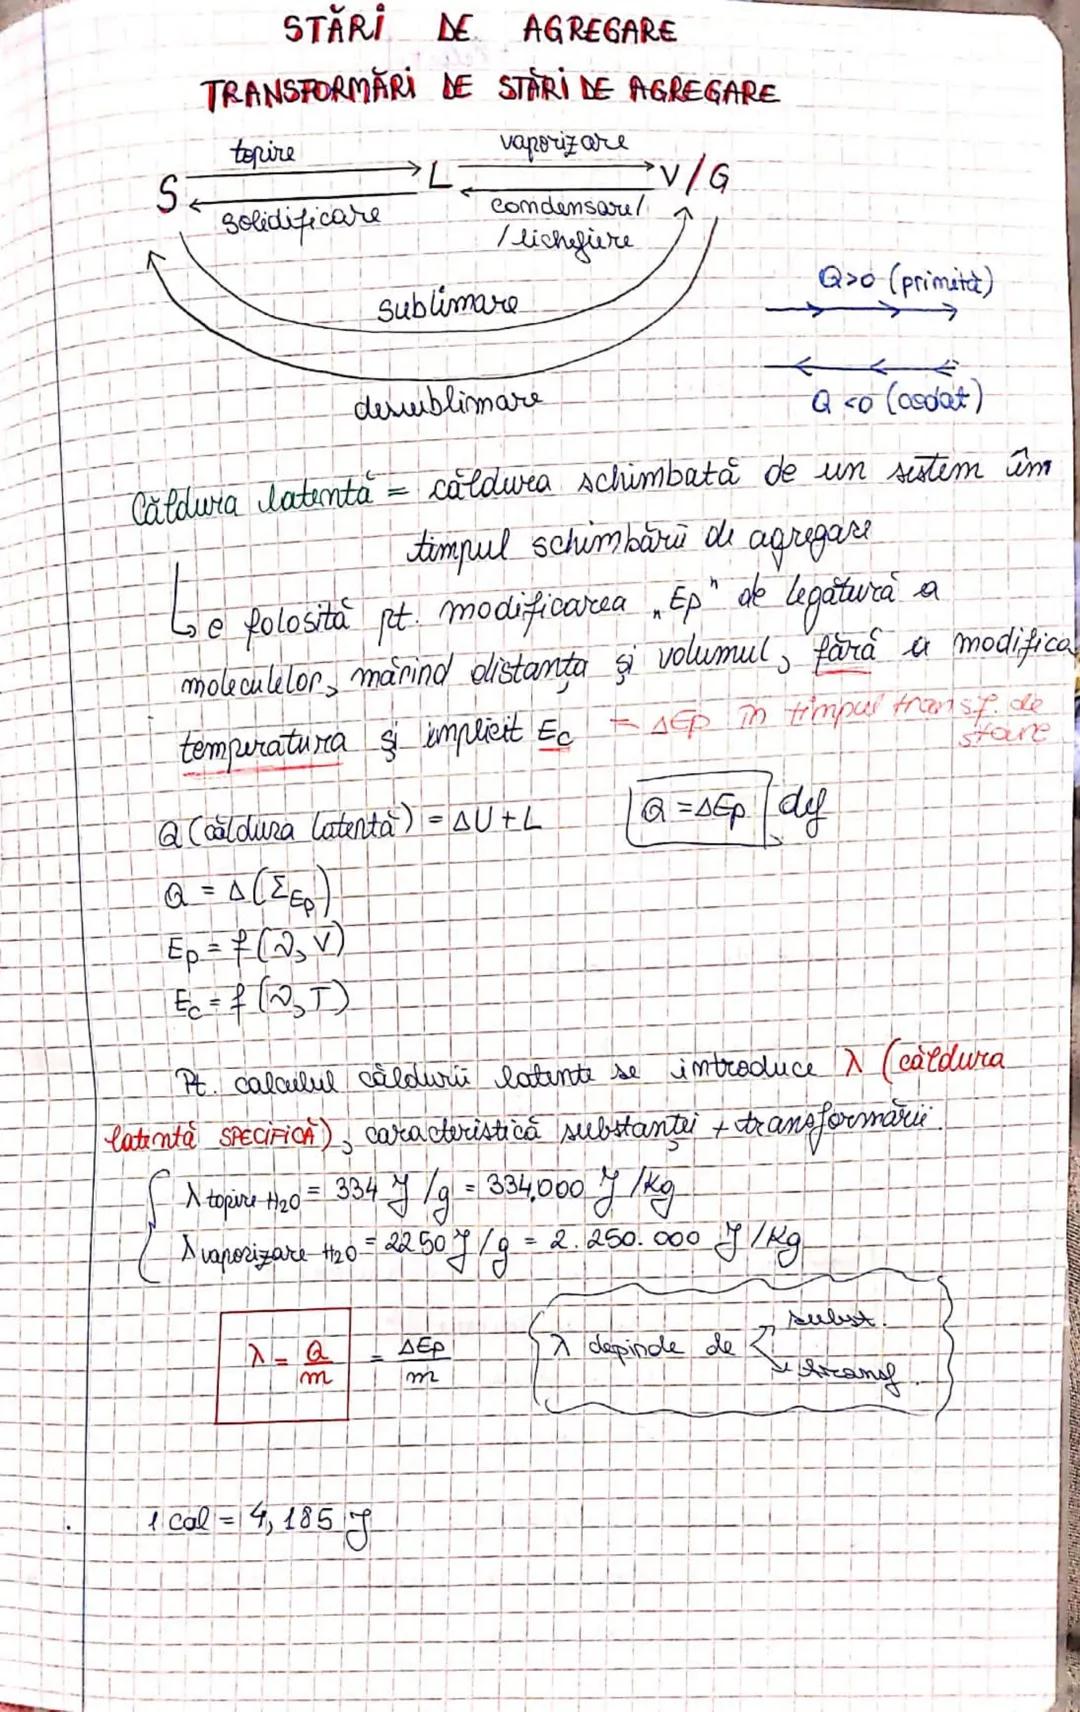 STĂRI DE AGREGARE
TRANSFORMĂRI DE STĂRI DE AGREGARE
topire
vaporizare
S
L
V/G
solidificare
condensare/
/lichefiere
sublimare
desublimare
Q>0 (primită)
Q<0 (cedat)
Căldura latentă = căldura schimbată de un sistem în
timpul schimbării de agregare
e folosită pt. modificarea „Ep" de legătură a
moleculelor, mărind distanța și volumul, fără a modifica
temperatura și implicit Ec
= ΔEp în timpul transf. de
stare
Q (căldura latentă) = ΔU + L
Q = ΔEp def
Q = Δ(ΣEp)
Ep = f(ν, V)
Ec = f(ν, T)
Pt. calculul căldurii latente se introduce λ (căldura
latentă SPECIFICĂ), caracteristică substanței + transformării.
λ topire H2O = 334 J/g = 334.000 J/Kg
λ vaporizare H2O = 2250 J/g = 2.250.000 J/Kg
λ = Q/m = ΔEp/m
λ depinde de
subst.
transf.
1 cal = 4,185 J